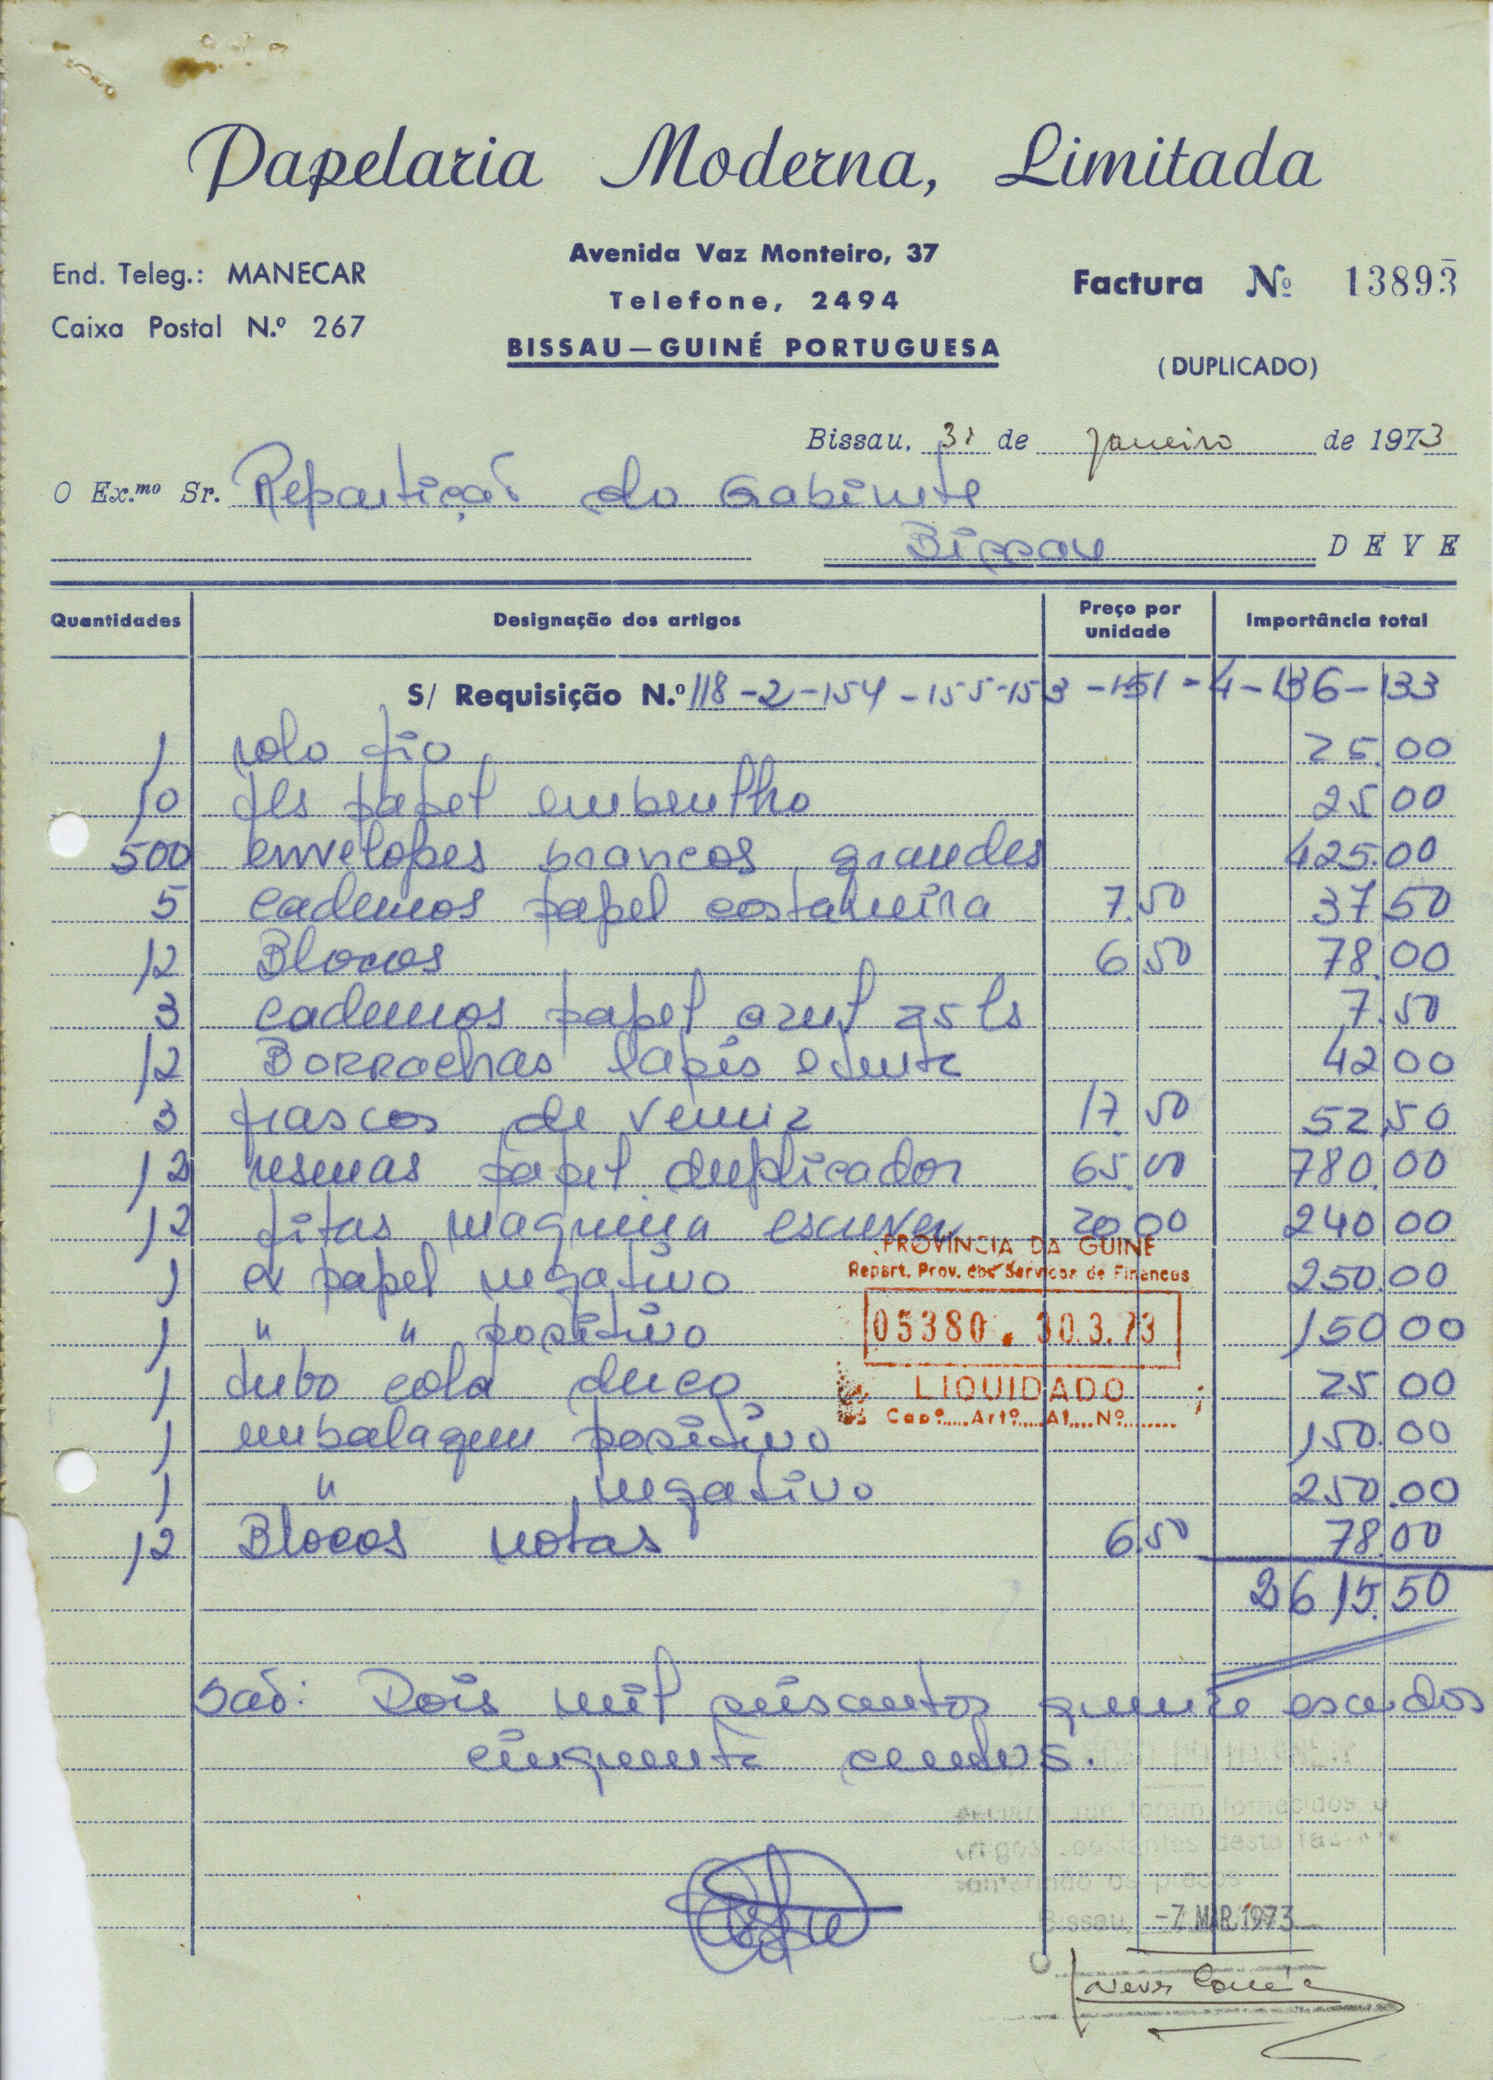 Papelaria Moderna, Limitada
End. Teleg.: MANECAR
Caixa Postal N.º 267
Avenida Vaz Monteiro, 37
Telefone, 2494
BISSAU — GUINÉ PORTUGUESA
Factura Nº 13893
(DUPLICADO)
Bissau, 31 de Janeiro de 1973
O Ex.mo Sr. Repartição do Gabinete
Bissau DEVE
Quantidades Designação dos artigos Preço por unidade Importância total
S/ Requisição N.º 118-2-154-155-153-151-4-136-133
1 rolo fio 25.00
10 fls papel embrulho 25.00
500 envelopes brancos grandes 425.00
5 cadernos papel costaneira 7.50 37.50
12 Blocos 6.50 78.00
3 cadernos papel azul 25 ls 7.50
12 Borrachas lapis e tinta 42.00
3 frascos de verniz 17.50 52.50
12 resmas papel duplicador 65.00 780.00
12 fitas maquina escrever 20.00 240.00
1 cx papel negativo 250.00
1 " " positivo 150.00
1 tubo cola duco 25.00
1 embalagem positivo 150.00
1 " negativo 250.00
12 Blocos notas 6.50 78.00
2615.50
PROVÍNCIA DA GUINÉ
Repart. Prov. dos Serviços de Finanças
05380 . 30.3.73
LIQUIDADO
Capº.....Artº.....Al.....Nº........
São: Dois mil seiscentos quinze escudos
cinquenta centavos.
que foram fornecidos
constantes desta
os preços
Bissau, -7 MAR. 1973
Neves